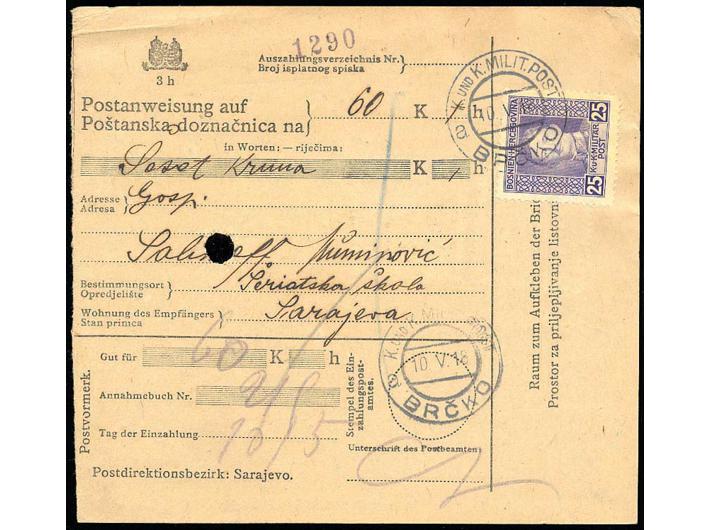 1290
Auszahlungsverzeichnis Nr.
Broj isplatnog spiska
3 h
Postanweisung auf 60 K h
Poštanska doznačnica na
in Worten: — riječima:
Seset Kruna K h
Adresse
Adresa
Gosp.
Muminović
Bestimmungsort
Opredjelište
Šeriatska škola
Wohnung des Empfängers
Stan primca
Sarajevo
K. UND K. MILIT. POST
10 V 18
BRČKO
BOSNIEN-HERCEGOVINA
25 K.u.K. MILITÄR POST 25
K. UND K. MILIT. POST
10 V. 18
a BRČKO
Gut für 60 K h
Annahmebuch Nr.
Tag der Einzahlung 10/5
Postvormerk.
Stempel des Einzahlungspostamtes.
Unterschrift des Postbeamten:
Postdirektionsbezirk: Sarajevo.
Raum zum Aufkleben der Brie
Prostor za priljepljivanje listovn